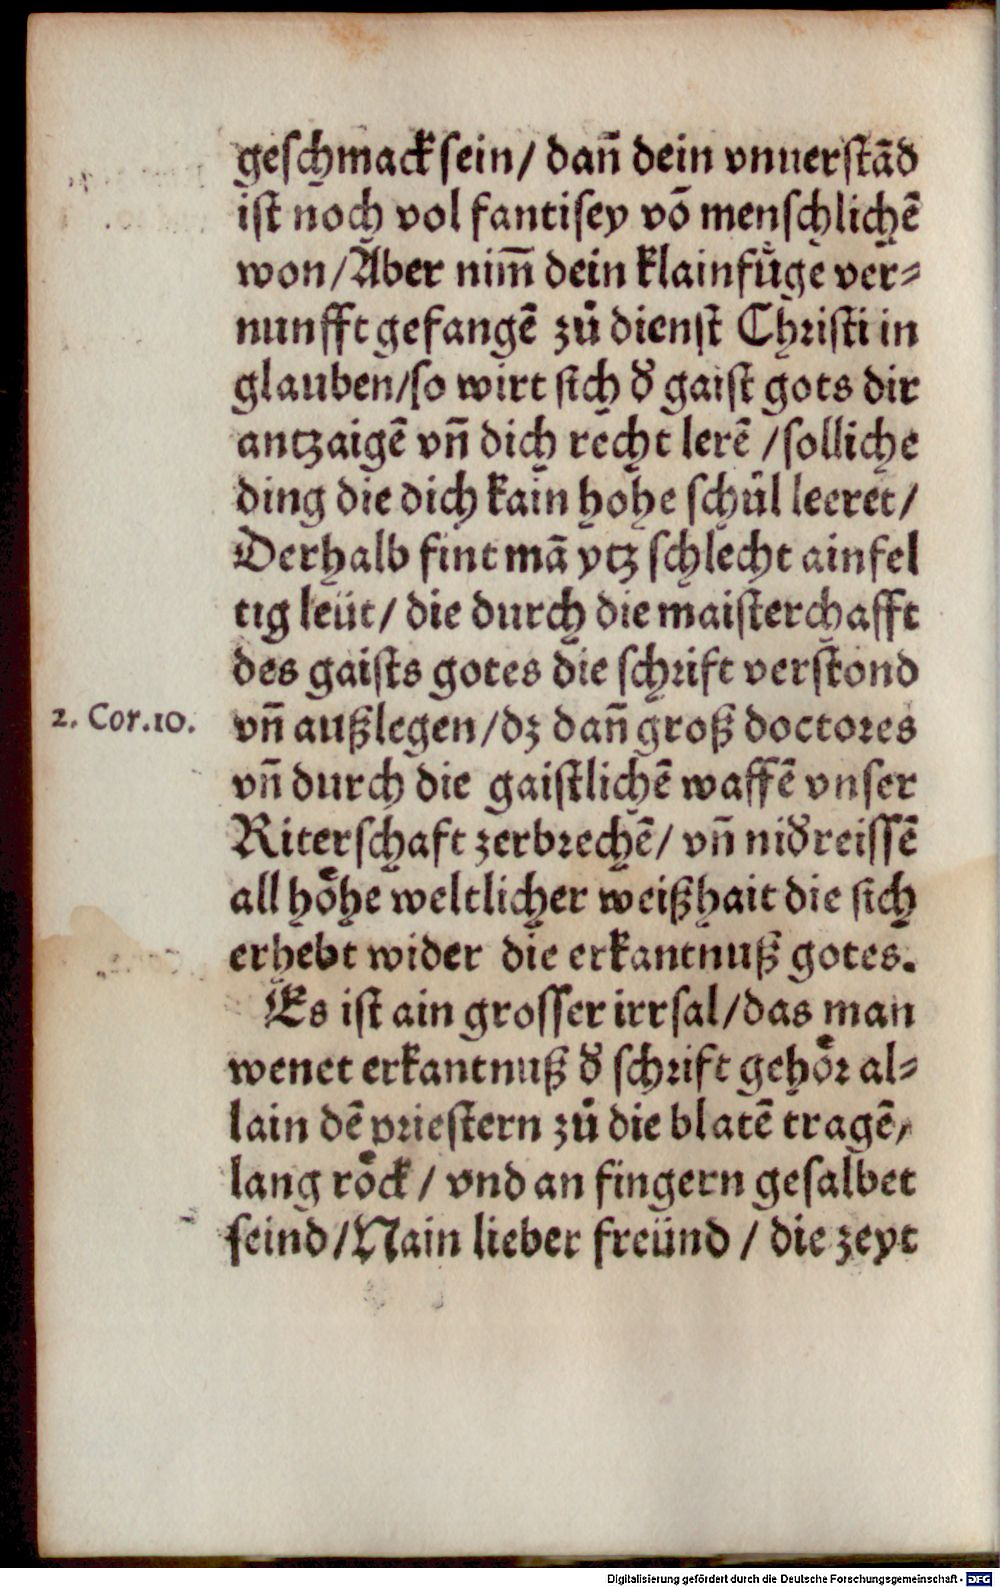 geschmack sein/ dañ dein vnuerstãd
ist noch vol fantisey võ menschlichẽ
won/Aber nim̃ dein klainfuͤge ver-
nunfft gefangẽ zů dienst Christi in
glauben/so wirt sich đ gaist gots dir
antzaigẽ vñ dich recht lerẽ /solliche
ding die dich kain hohe schůl leeret/
Derhalb fint mã ytz schlecht ainfel
tig leüt/ die durch die maisterchafft
des gaists gotes die schrift verstond
2. Cor.10.
vñ außlegen/dz dañ groß doctores
vñ durch die gaistlichẽ waffẽ vnser
Riterschaft zerbrechẽ/ vñ niđreissẽ
all hoͤhe weltlicher weißhait die sich
erhebt wider die erkantnuß gotes.
Es ist ain grosser irrsal/das man
wenet erkantnuß đ schrift gehoͤr al-
lain dẽ priestern zů die blatẽ tragẽ,
lang roͤck / vnd an fingern gesalbet
seind/Nain lieber freünd / die zeyt
Digitalisierung gefördert durch die Deutsche Forschungsgemeinschaft - DFG